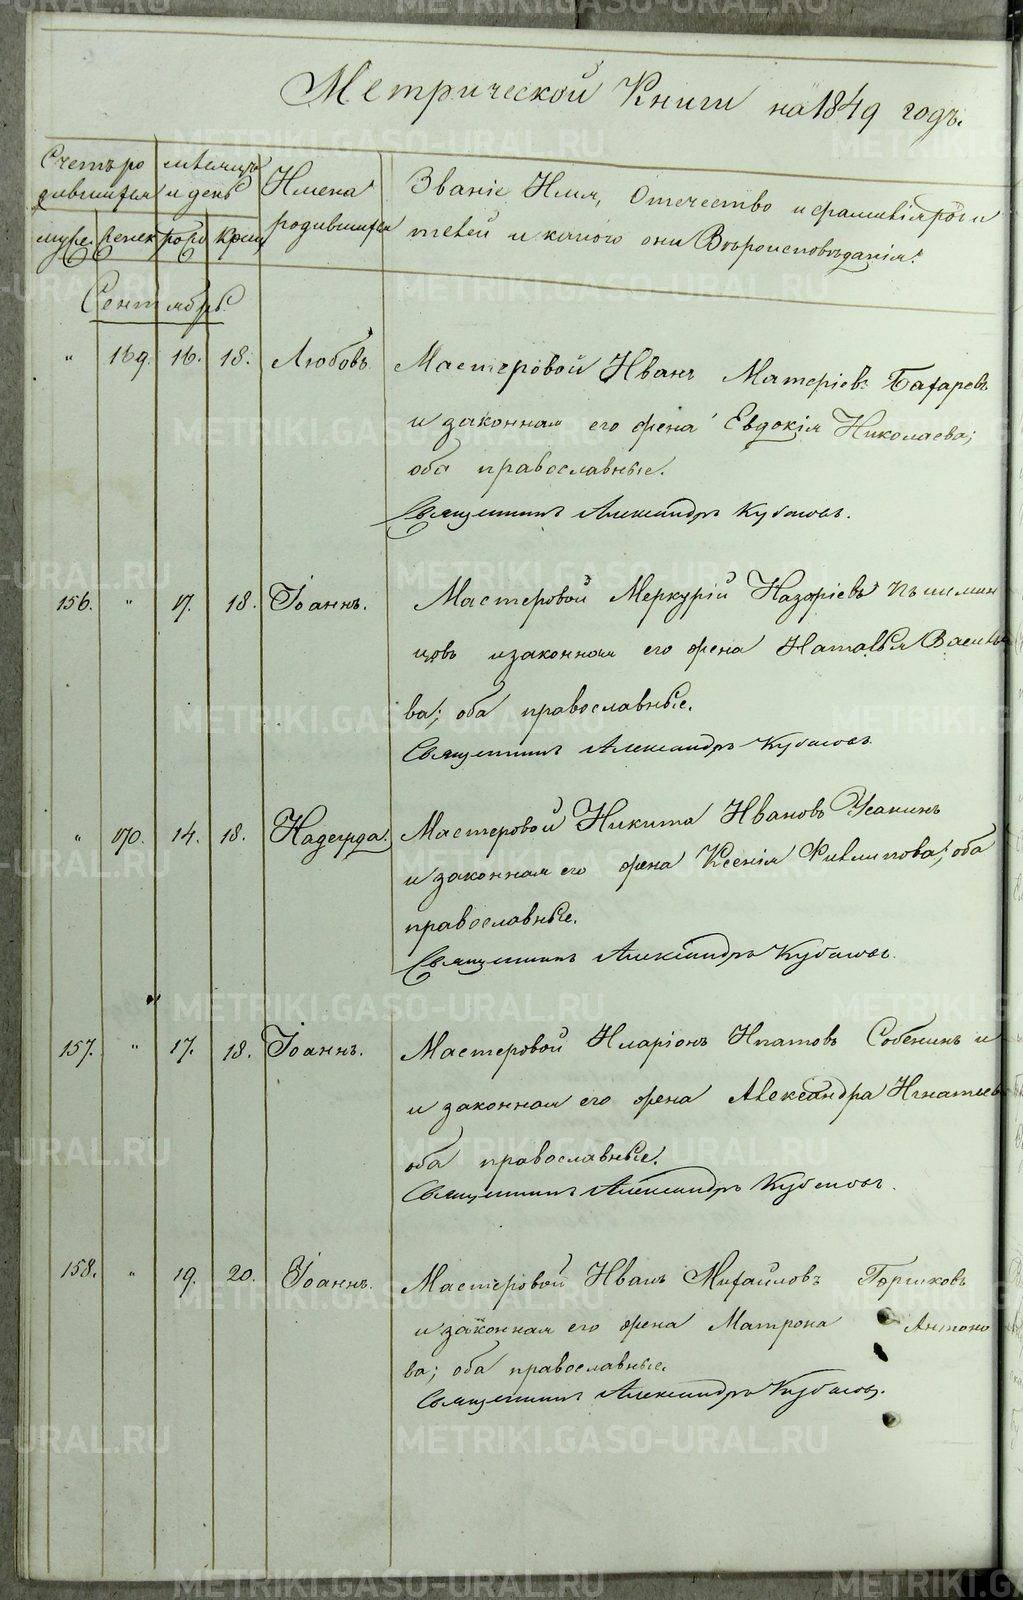 Метрической Книги на 1849 годъ.
Счетъ ро мѣсяцъ Имена Званіе Имя, Отечество и фамилія роди
дившихся и день родившихся телей и какого они Вѣроисповѣданія.
муже. женск рож крещ
Сентябрь
" 169. 16. 18. Любовь Мастеровой Иванъ Матвѣевъ
и законная его жена Евдокія Николаева;
оба православные.
Священникъ Александръ
156. " 17. 18. Іоаннъ. Мастеровой Меркурій Назаріевъ Пъшмин
цовъ и законная его жена Наталья Василье
ва; оба православные.
Священникъ Александръ
" 170. 14. 18. Надежда. Мастеровой Никита Ивановъ Усанинъ
и законная его жена Ксенія Филиппова; оба
православные.
Священникъ Александръ
157. " 17. 18. Іоаннъ. Мастеровой Иларіонъ Ипатовъ Собенинъ и
и законная его жена Александра Игнатьев
оба православные.
Священникъ Александръ
158. " 19. 20. Іоаннъ. Мастеровой Иванъ Михайловъ Горшковъ
и законная его жена Матрона Антоно
ва; оба православные.
Священникъ Александръ
METRIKI.GASO-URAL.RU